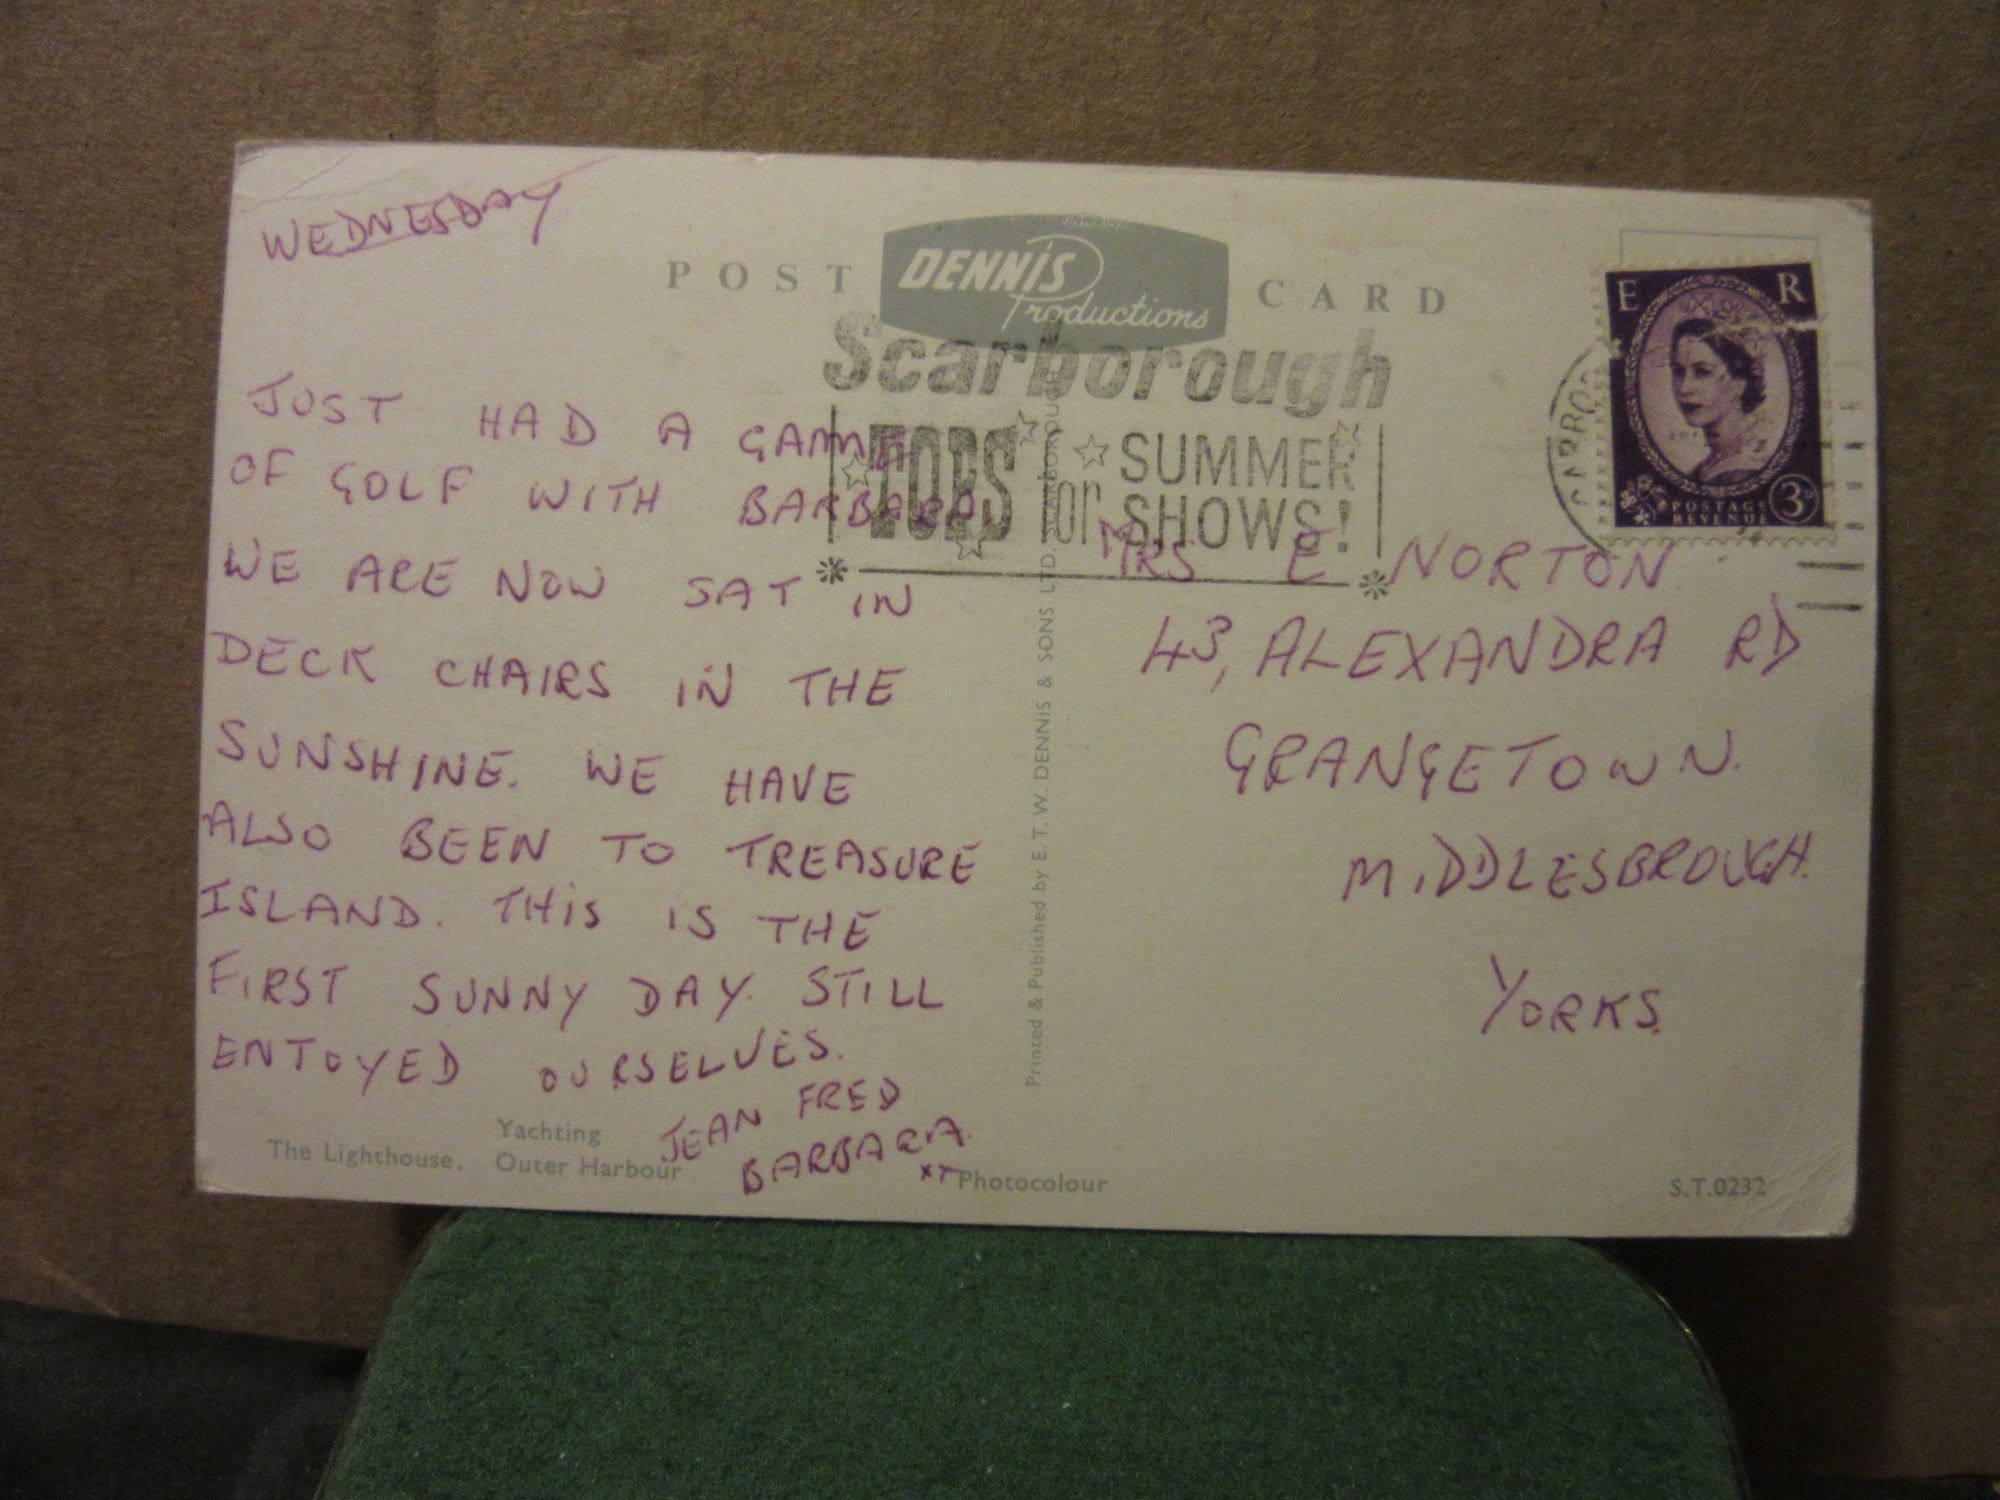 WEDNESDAY
POST CARD
DENNIS
Productions
Scarborough
TOPS for SUMMER
SHOWS!
E R
POSTAGE
REVENUE
3D
JUST HAD A GAME
OF GOLF WITH BARBARA,
WE ARE NOW SAT IN
DECK CHAIRS IN THE
SUNSHINE. WE HAVE
ALSO BEEN TO TREASURE
ISLAND. THIS IS THE
FIRST SUNNY DAY. STILL
ENTOYED OURSELVES.
JEAN FRED
BARBARA
MRS E NORTON
43, ALEXANDRA RD
GRANGETOWN.
MIDDLESBROUGH.
YORKS.
Printed & Published by E. T. W. DENNIS & SONS LTD. SCARBOROUGH
The Lighthouse. Yachting
Outer Harbour
Photocolour
S.T.0232